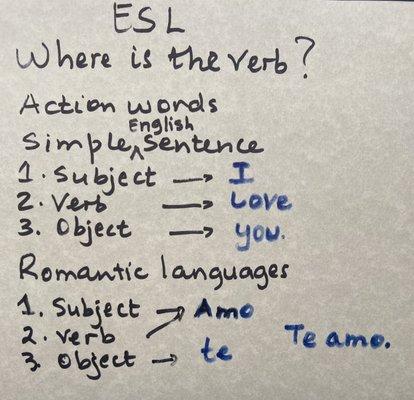 ESL
Where is the verb?
Action words
English
Simple ^ sentence
1. Subject → I
2. Verb → Love
3. Object → you.
Romantic languages
1. Subject → Amo
2. verb
3. Object → te
Te amo.